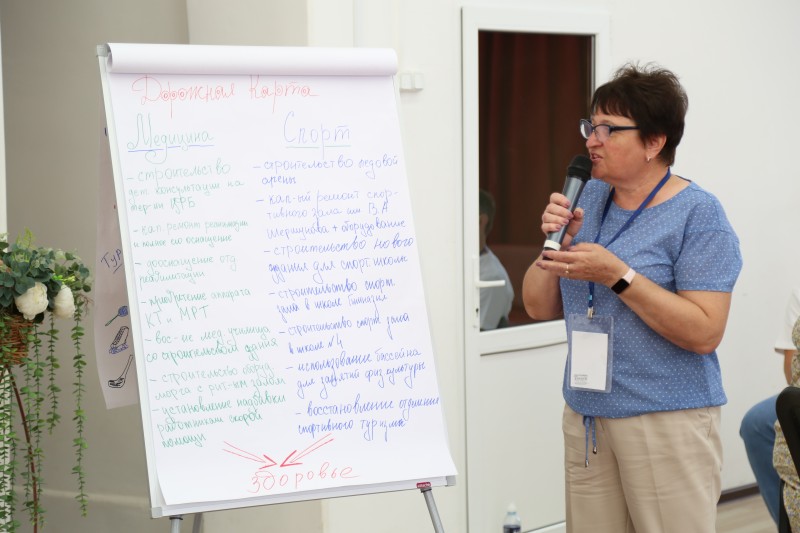 Дорожная карта
Медицина
- строительство
дет. консультации на
тер-ии ЦРБ
- кап. ремонт реанимации
и полное его оснащение
- дооснащение отд.
реабилитации
- приобретение аппарата
КТ и МРТ
- вос-ие мед. училища
со строительством здания
- строительство
морга с залом
- установление надбавки
работникам скорой
помощи
Спорт
- строительство ледовой
арены
- кап-ый ремонт спор-
тивного зала им В.А
+ оборудование
- строительство нового
здания для спорт. школы
- строительство спорт
зала в школе гимназии
- строительство спорт зала
в школе №4
- использование бассейна
для занятий физ культуры
- восстановление отделения
спортивного туризма
Здоровье
Тур